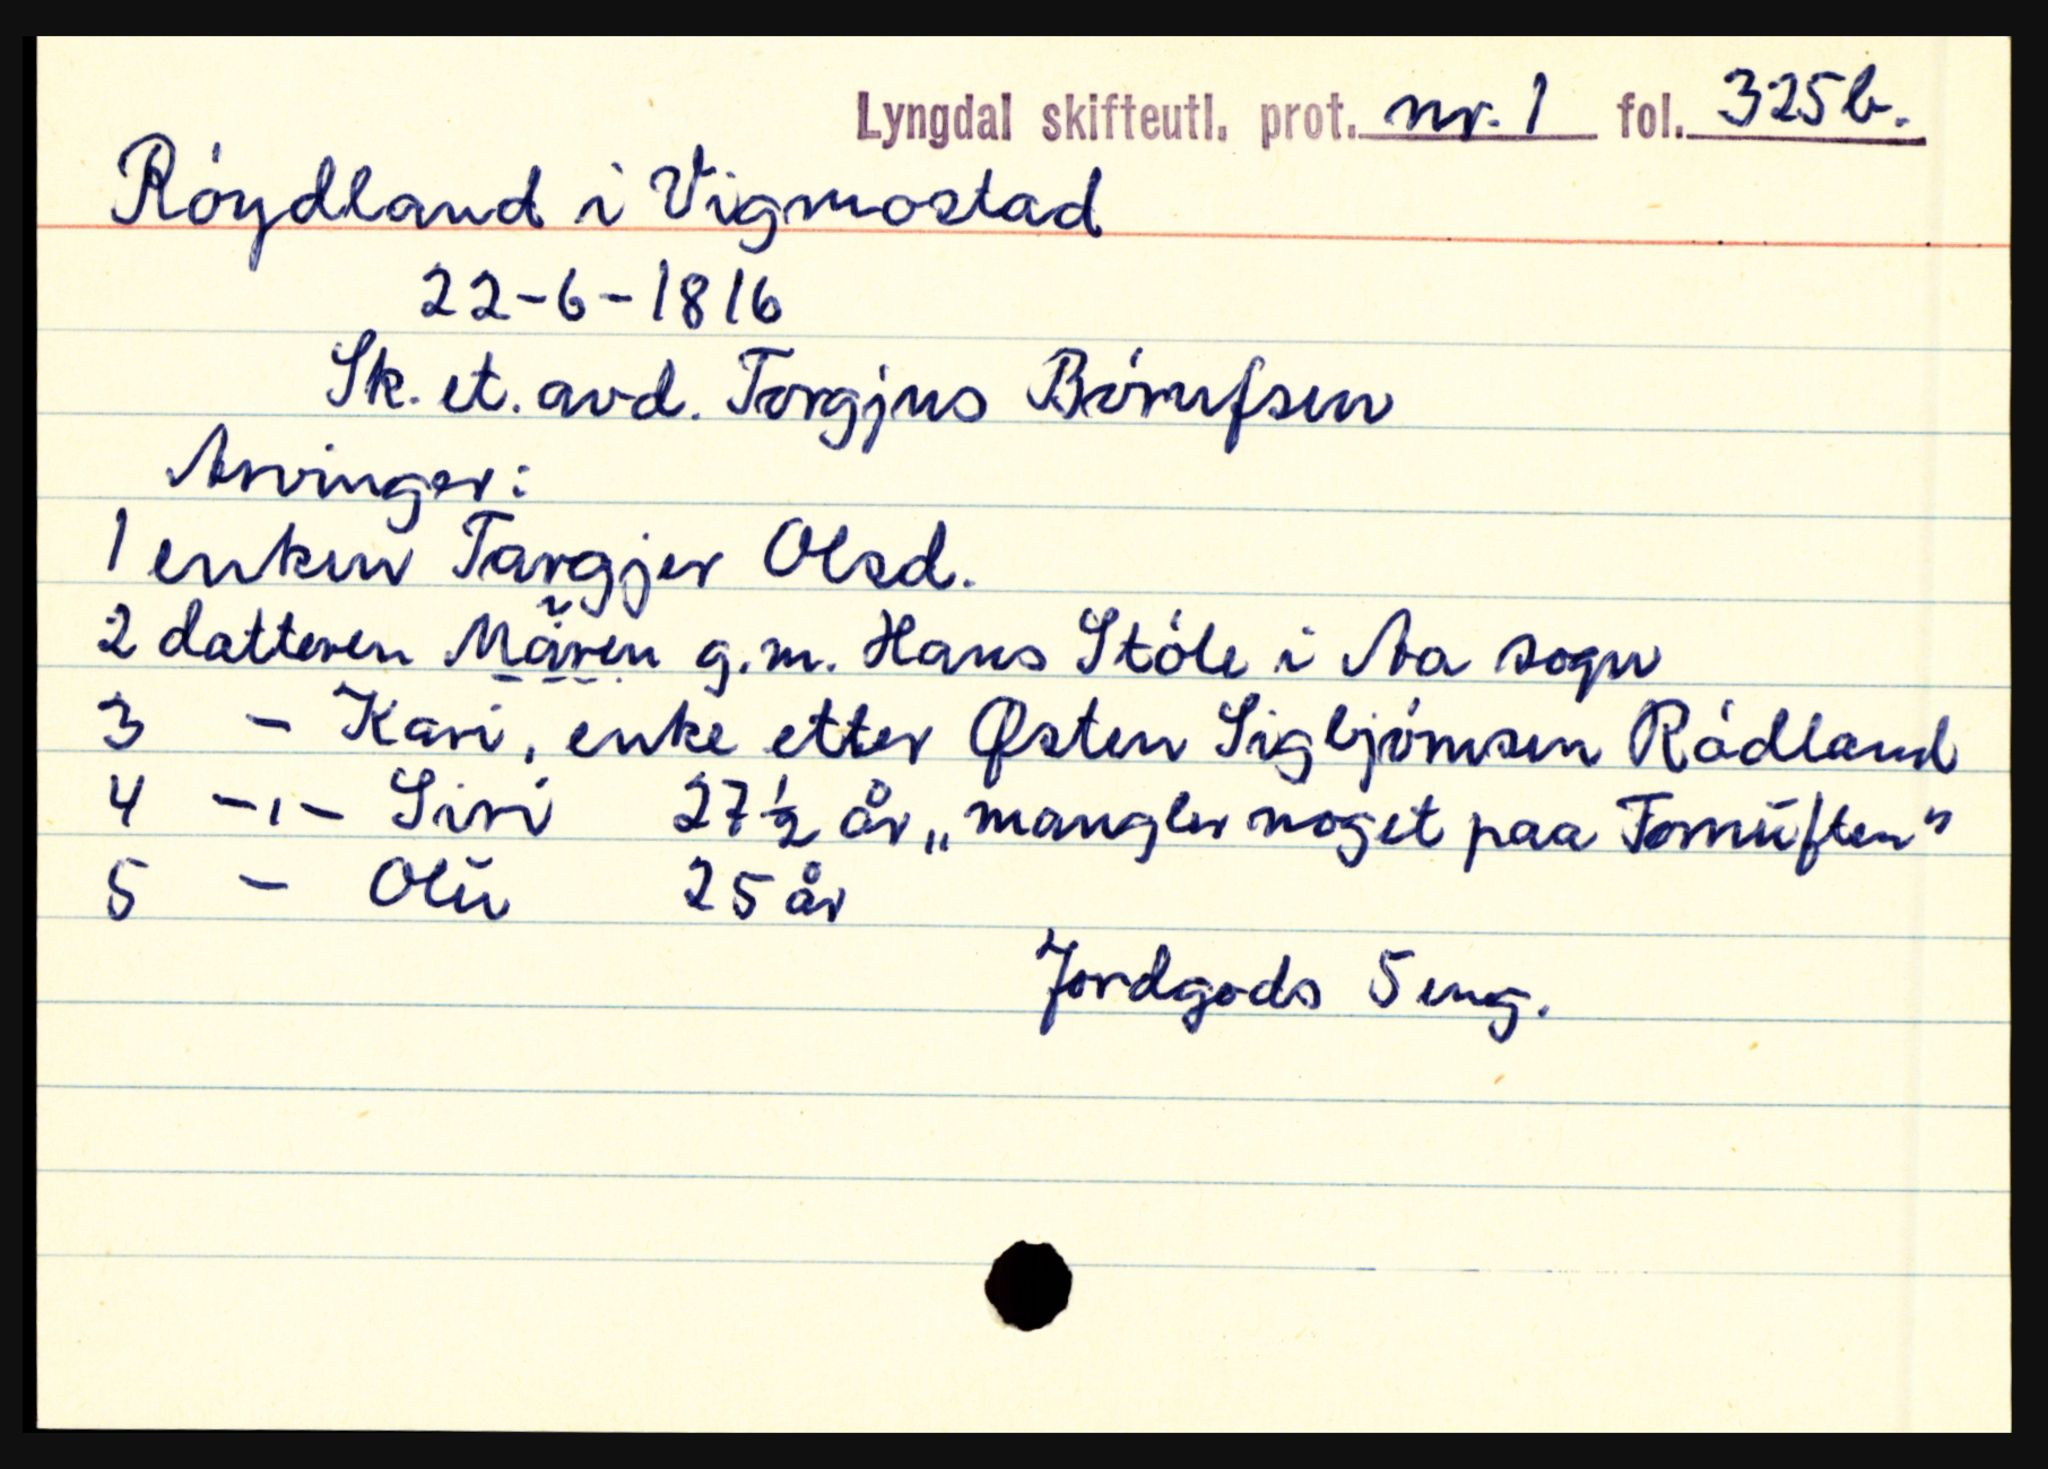 Lyngdal skifteutl. prot. nr. 1 fol. 325b.
Róydland i Vigmostad
22-6-1816
Sk. et. avd. Torgjus Bórufsen
Arvinger:
1 enken Targjer Olsd.
2 datteren Mären g.m. Hans Stóle i Aa sogn
3 - Kari, enke etter Østen Sigbjórnsen Ródland
4 -"- Siri 27½ år „mangler noget paa Fornŭften"
5 - Olŭ 25 år
Jordgods 5 eng.